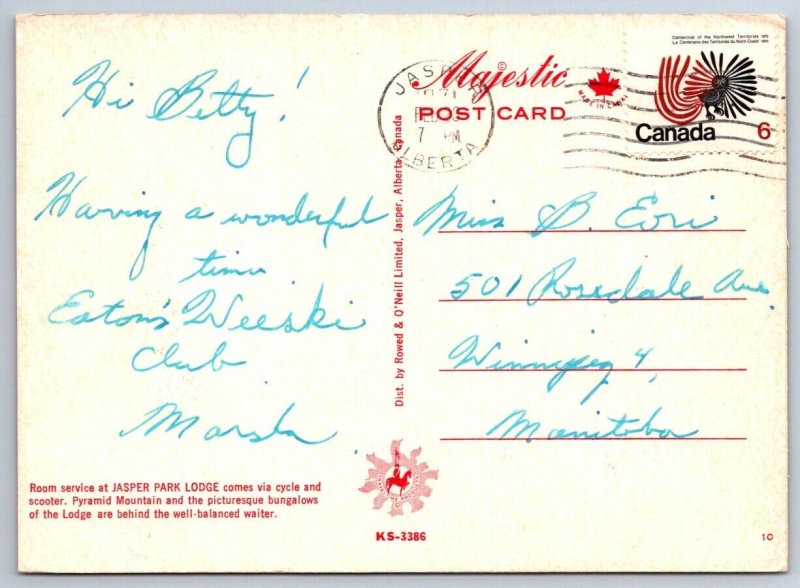 Hi Betty!
Having a wonderful
time
Eaton's Weeski
Club
Marsha
Room service at JASPER PARK LODGE comes via cycle and
scooter. Pyramid Mountain and the picturesque bungalows
of the Lodge are behind the well-balanced waiter.
Dist. by Rowed & O'Neill Limited, Jasper, Alberta, Canada
KS-3386
Majestic
©
POST CARD
MADE IN CANADA
JASPER
7 PM
ALBERTA
Centennial of the Northwest Territories 1970
Le Centenaire des Territoires du Nord-Ouest 1970
Canada 6
Miss B. Evri
501 Rosedale Ave.
Winnipeg 4,
Manitoba
10